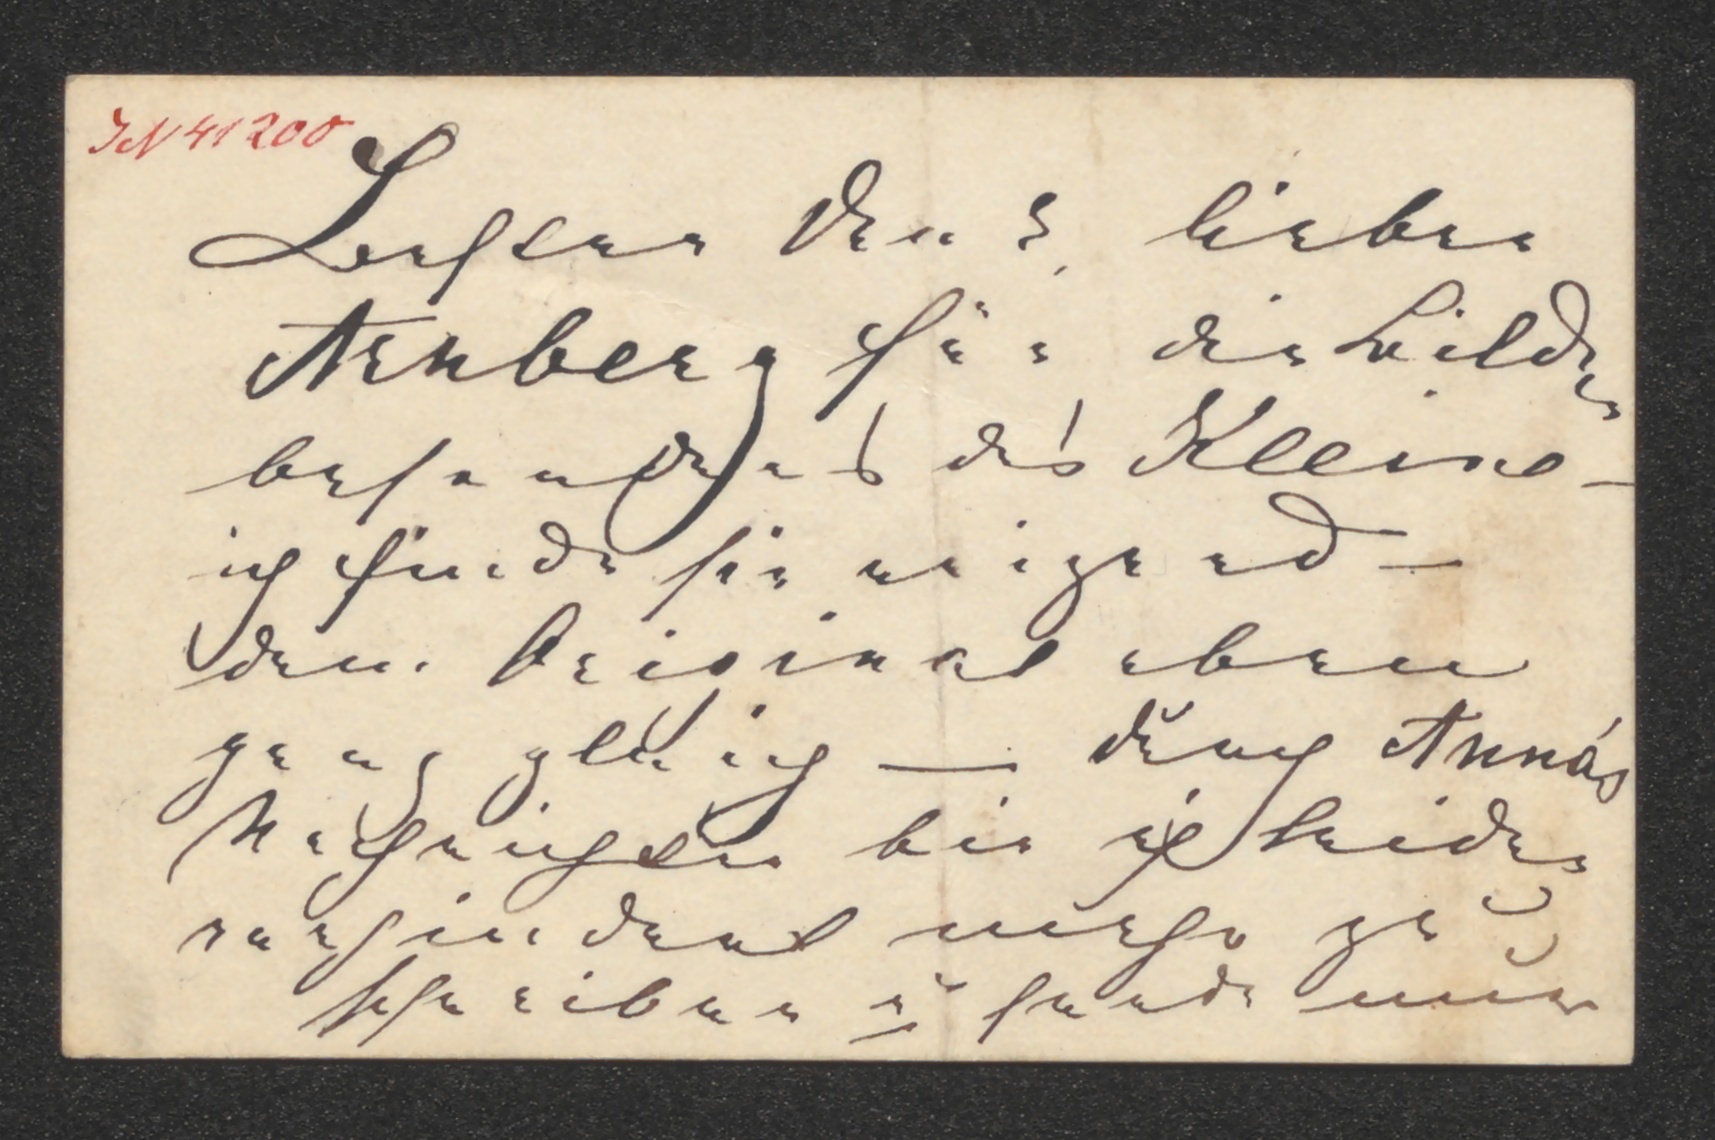 IN 41200
Besten Dank lieber
Arnberg für die Bilder
besonders das Kleine –
ich finde sie reizend –
dem Original eben
ganz gleich – durch Anna's
Nachrichten bin ich leider
verhindert mehr zu
schreiben u sende nur